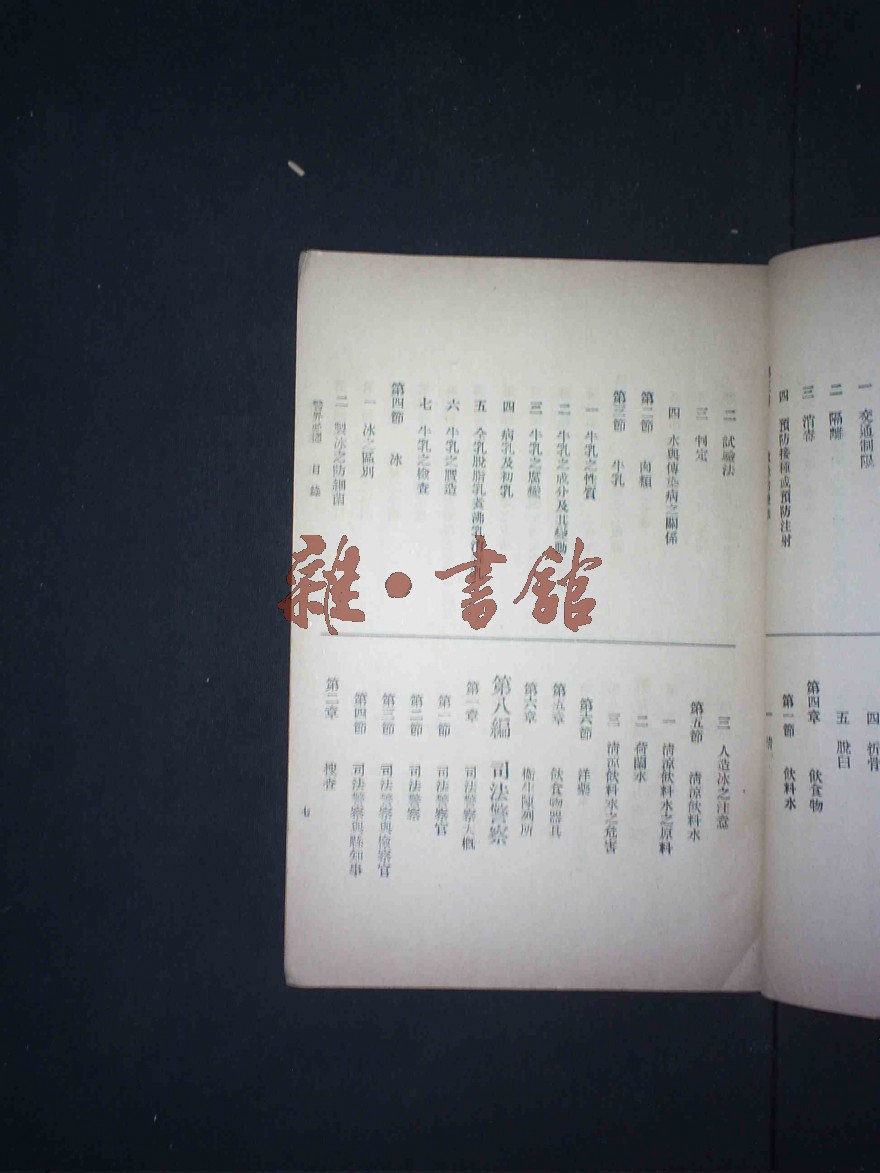 一 交通制限
二 隔離
三 消毒
四 預防接種或預防注射
四 折骨
五 脫臼
第四章 飲食物
第一節 飲料水
二 試驗法
三 判定
四 水與傳染病之關係
第二節 肉類
第三節 牛乳
一 牛乳之性質
二 牛乳之成分及其變動
三 牛乳之腐壞
四 病乳及初乳
五 全乳脫脂乳煮沸乳
六 牛乳之贋造
七 牛乳之檢查
第四節 冰
一 冰之區別
二 製冰之防細菌
三 人造冰之注意
第五節 淸涼飲料水
一 淸涼飲料水之原料
二 荷蘭水
三 淸涼飲料水之危害
第六節
第五章 飲食物器具
第六章 衞生陳列所
第八編 司法警察
第一章 司法警察大概
第一節 司法警察官
第二節 司法警察
第三節 司法警察與檢察官
第四節 司法警察與縣知事
第二章 搜查
目錄
七
雜·書館